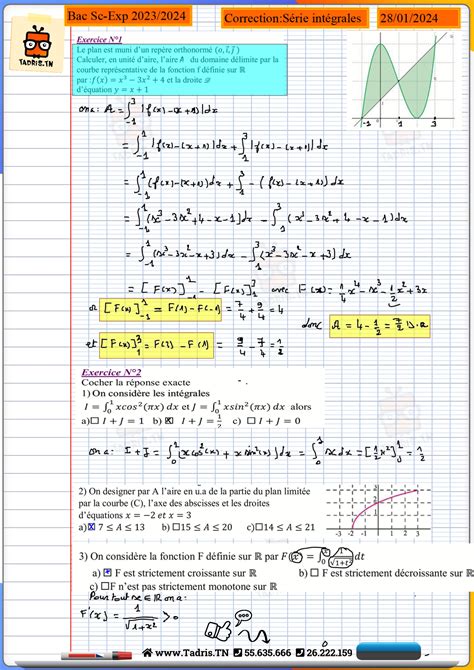 Bac Sc-Exp 2023/2024
Correction:Série intégrales
28/01/2024
TADRIS.TN
Exercice N°1
Le plan est muni d'un repère orthonormé (o, i⃗, j⃗ )
Calculer, en unité d'aire, l'aire A du domaine délimite par la
courbe représentative de la fonction f définie sur ℝ
par :f(x) = x³ − 3x² + 4 et la droite 𝒟
d'équation y = x + 1
-1 1 3
ona: A = ∫₋₁³ |f(x)-(x+1)|dx
= ∫₋₁¹ |f(x)-(x+1)|dx + ∫₁³ |f(x)-(x+1)|dx
= ∫₋₁¹ (f(x)-(x+1))dx + ∫₁³ -(f(x)-(x+1))dx
= ∫₋₁¹ (x³-3x²+4-x-1)dx - ∫₁³ (x³-3x²+4-x-1)dx
= ∫₋₁¹ (x³-3x²-x+3)dx - ∫₁³ (x³-3x²-x+3)dx
= [F(x)]₋₁¹ - [F(x)]₁³ avec F(x)= 1/4 x⁴ - x³ - 1/2 x² + 3x
or [F(x)]₋₁¹ = F(1) - F(-1) = 7/4 + 9/4 = 4
donc A = 4 - 1/2 = 7/2 u.a
et [F(x)]₁³ = F(3) - F(1) = 9/4 - 7/4 = 1/2
Exercice N°2
Cocher la réponse exacte
1) On considère les intégrales
I = ∫₀¹ xcos²(πx) dx et J = ∫₀¹ xsin²(πx) dx alors
a)☐ I + J = 1 b) ☒ I + J = 1/2 c) ☐ I + J = 0
ona: I + J = ∫₀¹ (x cos²(x) + x sin²(x))dx = ∫₀¹ x dx = [1/2 x²]₀¹ = 1/2
2) On designer par A l'aire en u.a de la partie du plan limitée
par la courbe (C), l'axe des abscisses et les droites
d'équations x = −2 et x = 3
a)☒ 7 ≤ A ≤ 13 b)☐15 ≤ A ≤ 20 c)☐14 ≤ A ≤ 21
-3 -2 -1 1 2 3
3) On considère la fonction F définie sur ℝ par F(x) = ∫₀ˣ 1/√(1+t²) dt
a) ☒ F est strictement croissante sur ℝ b) ☐ F est strictement décroissante sur ℝ
c) ☐F n'est pas strictement monotone sur ℝ
Pour tout x ∈ ℝ ona:
F'(x) = 1/√(1+x²) > 0
www.Tadris.TN 55.635.666 26.222.159